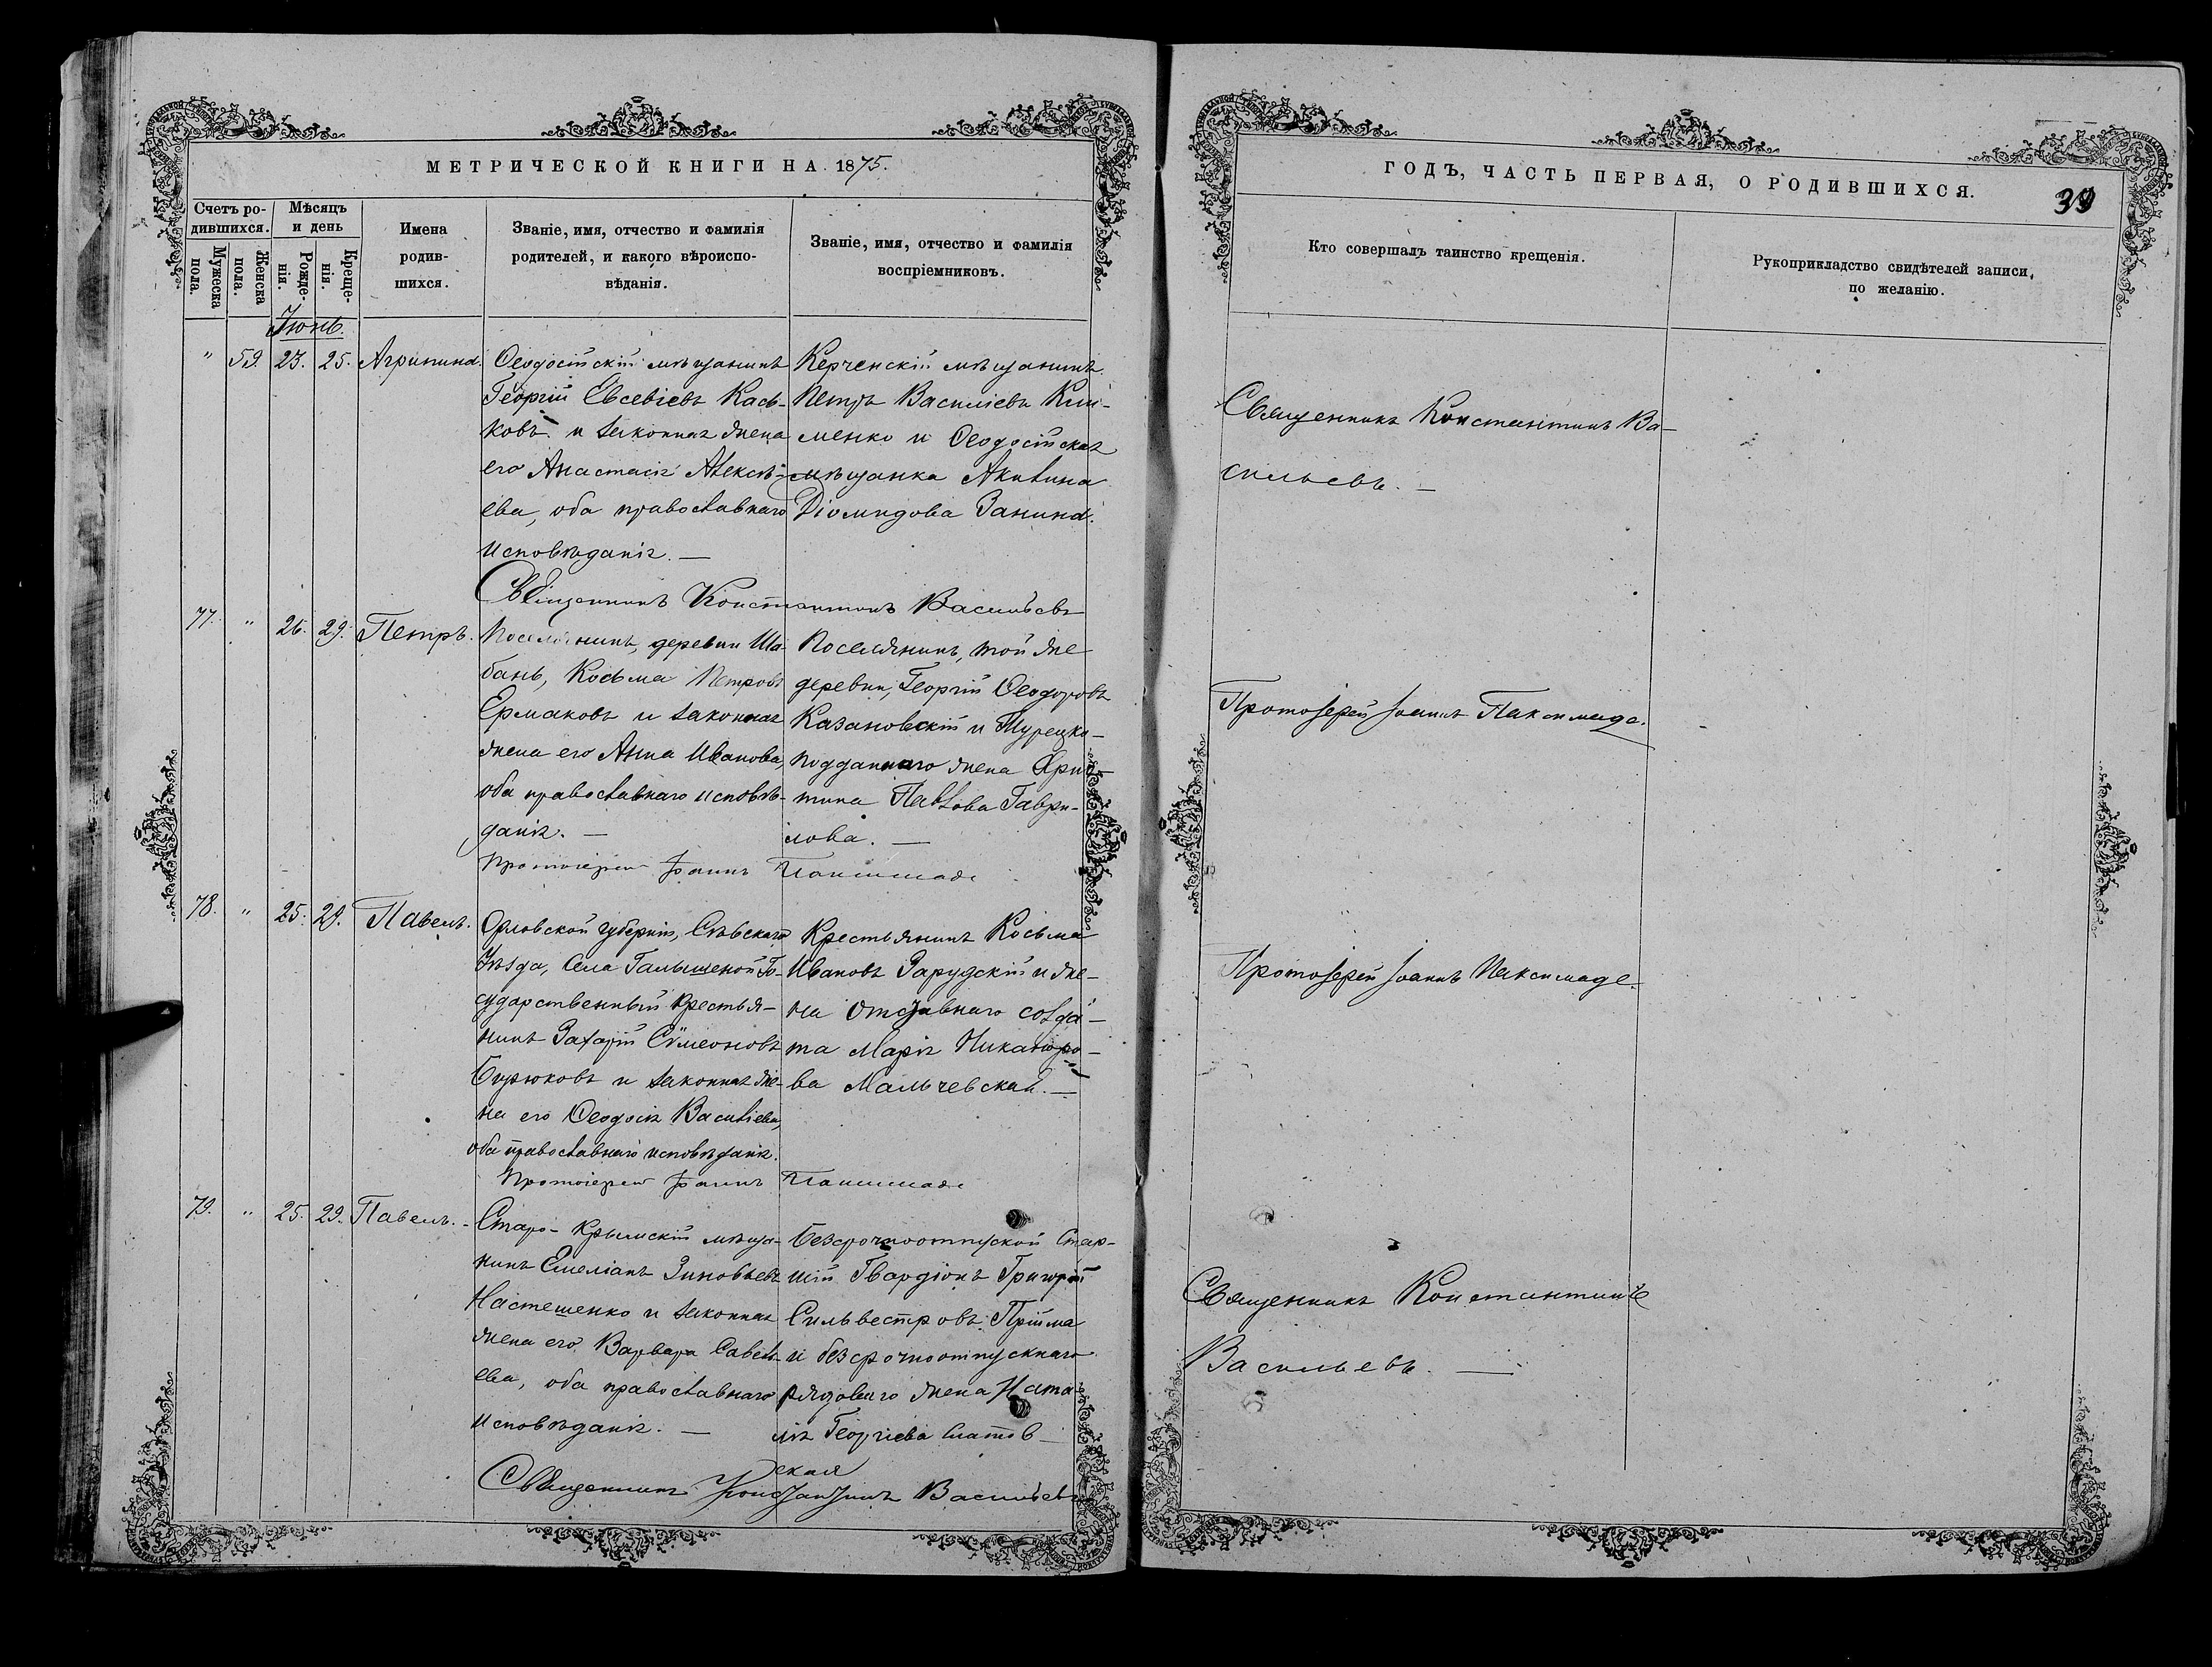 МЕТРИЧЕСКОЙ КНИГИ НА 1875.
Счетъ ро-
дившихся.
Мѣсяцъ
и день
Мужеска
пола.
Женска
пола.
Рожде-
нія.
Креще-
нія.
Имена
родив-
шихся.
Званіе, имя, отчество и фамилія
родителей, и какого вѣроиспо-
вѣданія.
Званіе, имя, отчество и фамилія
воспріемниковъ.
Іюнь.
" 59. 23. 25. Агрипина.
Ѳеодосійскій мѣщанинъ
Георгій Евсевіевъ Кась-
ковъ и законная жена
его Анастасія Алексѣ-
ева, оба православнаго
исповѣданія. —
Керченскій мѣщанинъ
Петръ Василіевъ Кли-
менко и Ѳеодосійская
мѣщанка Акилина
Діомидова Занина.
Священникъ Константинъ Васильевъ
77. " 26. 29. Петръ.
Поселянинъ, деревни Ша-
бань, Косьма Петровъ
Ермаковъ и законная
жена его Анна Иванова,
оба православнаго исповѣ-
данія. —
Поселянинъ, той же
деревни, Георгій Ѳеодоровъ
Казановскій и Турецко-
подданнаго жена Хрис-
тина Павлова Гаври-
лова. —
Протоіерей Іоаннъ Паксимаде
78. " 25. 29. Павелъ.
Орловской губерніи, Сѣвскаго
Уѣзда, Села Го-
сударственный крестья-
нинъ Захарій Сѵмеоновъ
Бирюковъ и законная же-
на его Ѳеодосія Василіева,
оба православнаго исповѣданія.
Крестьянинъ Косьма
Ивановъ Зарудскій и же-
на отставнаго солда-
та Марія Никаноро-
ва Мальчевская. —
Протоіерей Іоаннъ Паксимаде
79. " 25. 29. Павелъ. -
Старо-Крымскій мѣща-
нинъ Емеліанъ Зиновьевъ
Настешенко и законная
жена его Варвара Савель-
ева, оба православнаго
исповѣданія. —
Безсрочноотпускной Стар-
шій Гвардіонъ Григорій
Сильвестровъ Прійма
и безсрочноотпускнаго
рядоваго жена Ната
лія Георгіева Слатов-
ская
Священникъ Константинъ Васильевъ
ГОДЪ, ЧАСТЬ ПЕРВАЯ, О РОДИВШИХСЯ.
39
Кто совершалъ таинство крещенія.
Рукоприкладство свидѣтелей записи,
по желанію.
Священникъ Константинъ Ва-
сильевъ. —
Протоіерей Іоаннъ Паксимаде.
Протоіерей Іоаннъ Паксимаде.
Священникъ Константинъ
Васильевъ. —